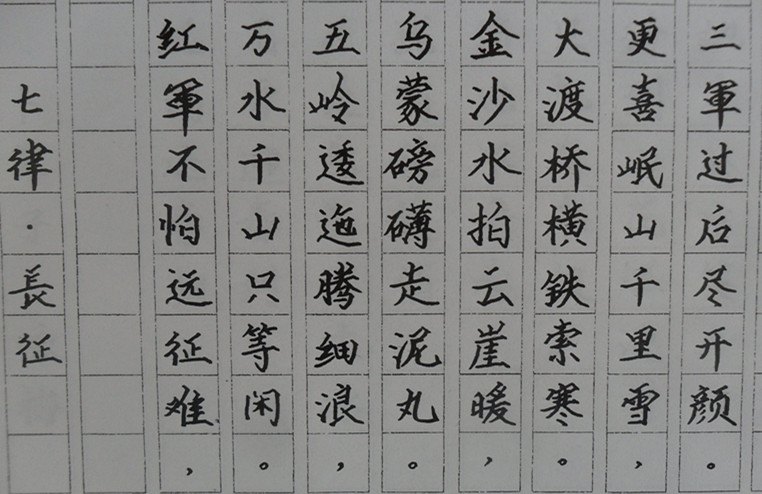 七律·長征
红軍不怕远征难，
万水千山只等闲。
五岭逶迤腾细浪，
乌蒙磅礴走泥丸。
金沙水拍云崖暖，
大渡桥横铁索寒。
更喜岷山千里雪，
三軍过后尽开颜。